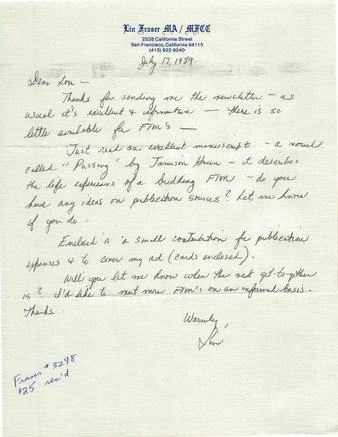 Lin Fraser MA / MFCC
2538 California Street
San Francisco, California 94115
(415) 922-9240
July 17, 1989
Dear Lou -
Thanks for sending me the newsletter - as
usual it's excellent & informative - there is so
little available for FTM's -
Just read an excellent manuscript - a novel
called "Passing" by Jamison Green - it describes
the life experiences of a budding FTM - do you
have any ideas on publication sources? Let me know
if you do.
Enclosed is a small contribution for publication
expenses & to cover my ad (cards enclosed).
Will you let me know when the next get-together
is? I'd like to meet more FTM's on an informal basis.
Thanks.
Warmly,
Lin
Fraser # 3298
$25 rec'd